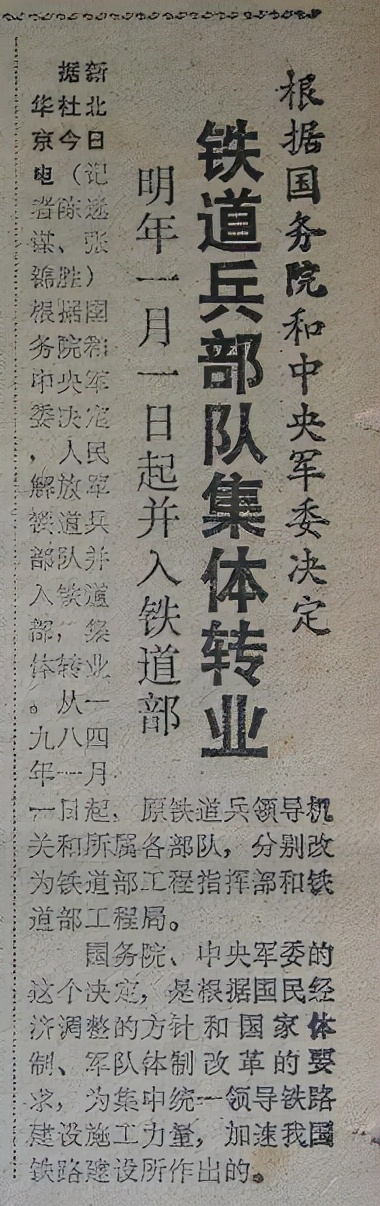 根据国务院和中央军委决定
铁道兵部队集体转业
明年一月一日起并入铁道部
据新
华社北
京今日
电（记
者陈
谋、张
锦胜）
根据国
务院和
中央军
委决定
，人民
解放军
铁道兵
部队并
入铁道
部，集
体转业
。从一
九八四
年一月
一日起，原铁道兵领导机
关和所属各部队，分别改
为铁道部工程指挥部和铁
道部工程局。
国务院、中央军委的
这个决定，是根据国民经
济调整的方针和国家体
制、军队体制改革的要
求，为集中统一领导铁路
建设施工力量，加速我国
铁路建设所作出的。